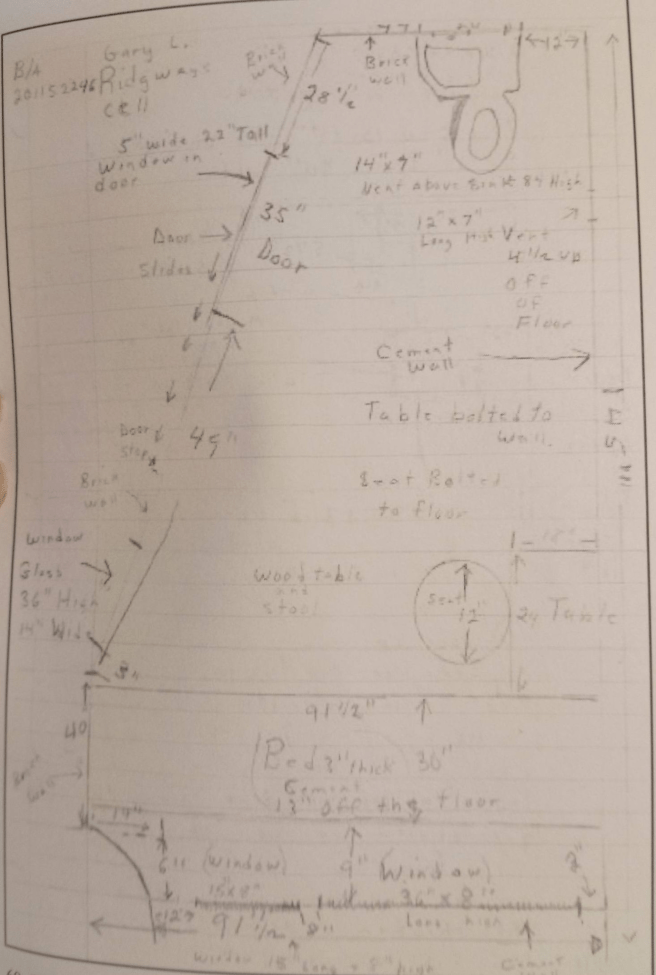 Gary L.
B/A
201152246 Ridgways
cell
Brick
wall
28 1/2
Brick
wall
12
5" wide 22" Tall
Window in
door
14" x 7"
Vent above Sink 84 High
35"
Door
12" x 7"
Long High Vent
4 1/2 up
off
of
Floor
Door
Slides
Cement
Wall
Table bolted to
Wall.
Door
Stop
49"
Brick
wall
Seat Bolted
to floor
Window
Glass
36" High
14" Wide
Wood table
and
stool
18"
Seat
12"
24 Table
8"
91 1/2"
40
Bed 3" thick 36"
Cement
off the floor
Brick
wall
14"
6" (window)
9" (Window)
2"
36" x 8"
Long high
12"
91 1/2
8"
Window 18" Long
Cement